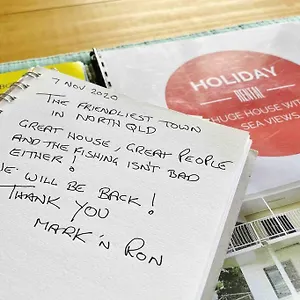 7 NOV 2020
THE FRIENDLIEST TOWN
IN NORTH QLD
GREAT HOUSE, GREAT PEOPLE
AND THE FISHING ISN'T BAD
EITHER!
WE WILL BE BACK!
THANK YOU
MARK 'N RON
HOLIDAY
RENTAL
HUGE HOUSE WIT
SEA VIEWS